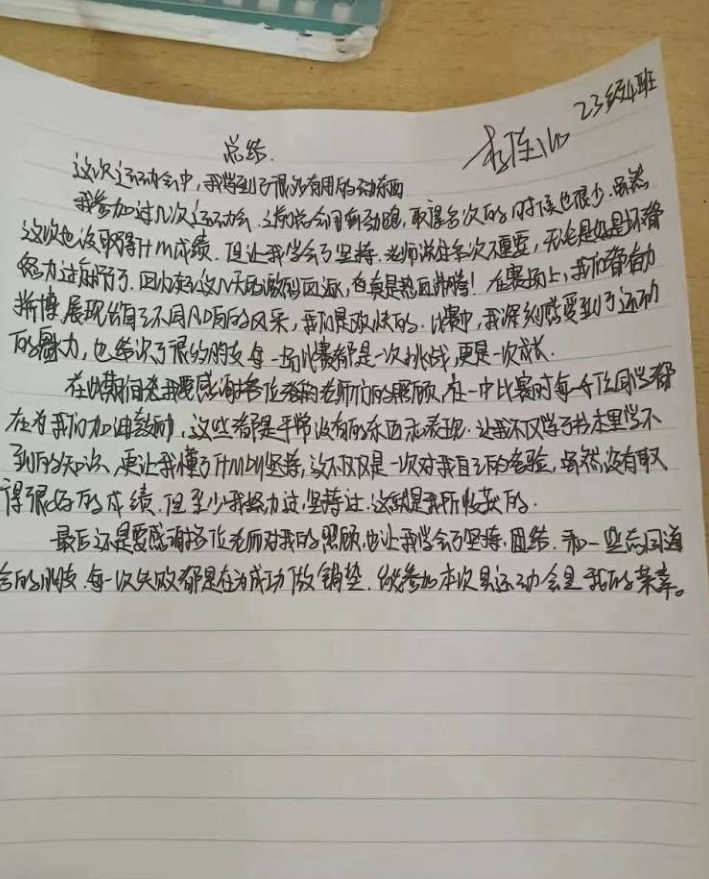 23级4班
总结.
这次运动会中,我学到了很多有用的东西
我参加过几次运动会.取得名次的时候也很少.虽然
这次也没取得什么成绩.但让我学会了坚持.老师说名次不重要,无论是好是坏都
努力过就行了.回忆起这几天的激动,也真是热血沸腾!在赛场上,我们奋力
拼搏,展现出自己不同的风采,我们是欢快的.比赛中,我深刻感受到了运动
的魅力,也结识了很多的朋友.每一场比赛都是一次挑战,更是一次成长.
在此期间我要感谢各位老师们的照顾,在一中比赛时每一位同学都
在为我们加油鼓励,这些都是平常没有的.让我不仅学了书本里学不
到的知识、更让我懂了什么叫坚持,这不仅仅是一次对我自己的考验,虽然没有取
得很好的成绩.但至少我努力过,坚持过.这就是我所收获的.
最后还是要感谢各位老师对我的照顾,也让我学会了坚持.团结.和一些志同道
合的朋友.每一次失败都是在为成功做铺垫.能参加本次县运动会是我的荣幸。